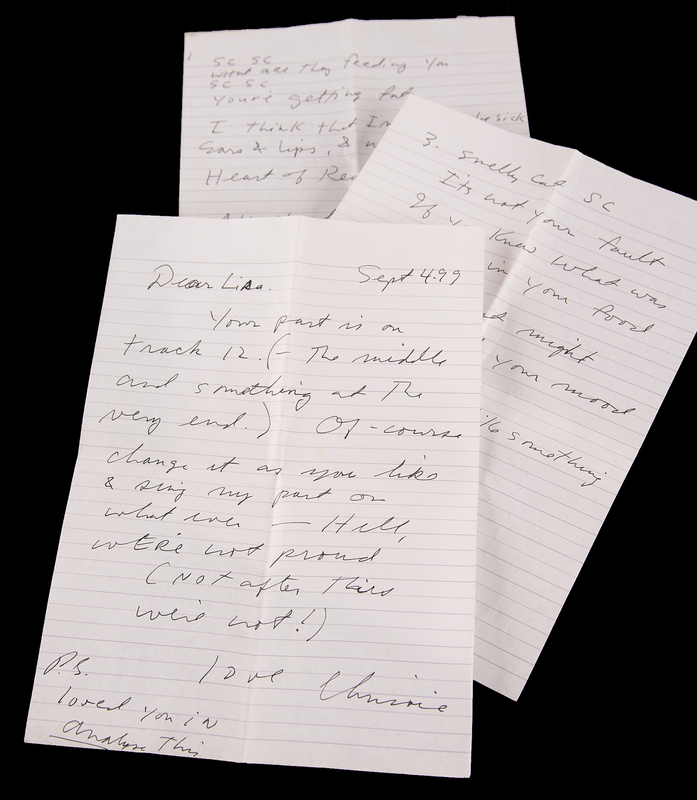 SC SC
what are they feeding you
SC SC
You're getting fat
I think that I'm be sick
Ears & Lips, &
Heart of
3. Smelly Cat SC
It's not your fault
If you knew what was
in your food
might
your mood
something
Dear Lisa. Sept 4.99
Your part is on
track 12. (– The middle
and something at the
very end.) Of-course
change it as you like
& sing my part or
what ever — Hell,
wERE not proud
(Not after this
we're not!)
love Chrissie
P.S.
loved you in
Analyze This